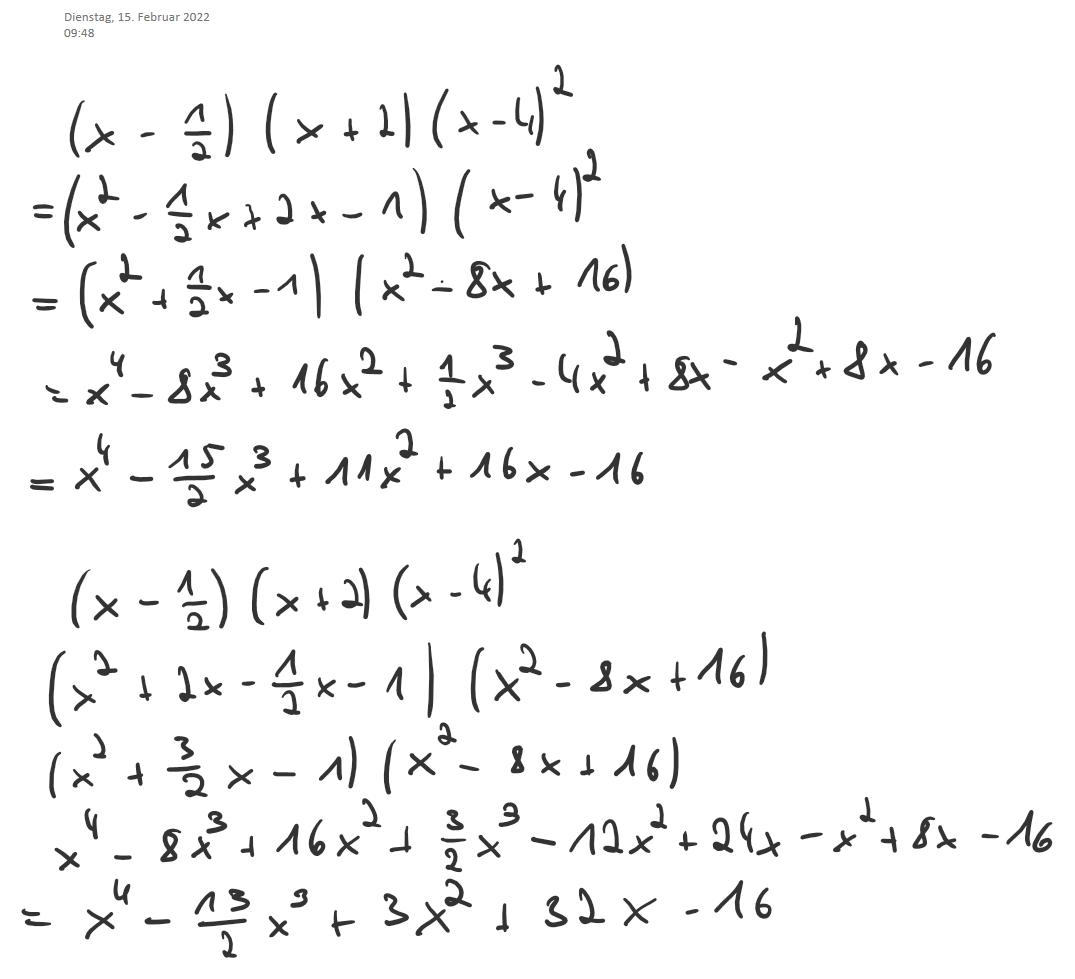 Dienstag, 15. Februar 2022
09:48
(x - 1/2) (x + 2) (x - 4)²
= (x² - 1/2 x + 2x - 1) (x - 4)²
= (x² + 1/2 x - 1) (x² - 8x + 16)
= x⁴ - 8x³ + 16x² + 1/2 x³ - 4x² + 8x - x² + 8x - 16
= x⁴ - 15/2 x³ + 11x² + 16x - 16
(x - 1/2) (x + 2) (x - 4)²
(x² + 2x - 1/2 x - 1) (x² - 8x + 16)
(x² + 3/2 x - 1) (x² - 8x + 16)
x⁴ - 8x³ + 16x² + 3/2 x³ - 12x² + 24x - x² + 8x - 16
= x⁴ - 13/2 x³ + 3x² + 32x - 16